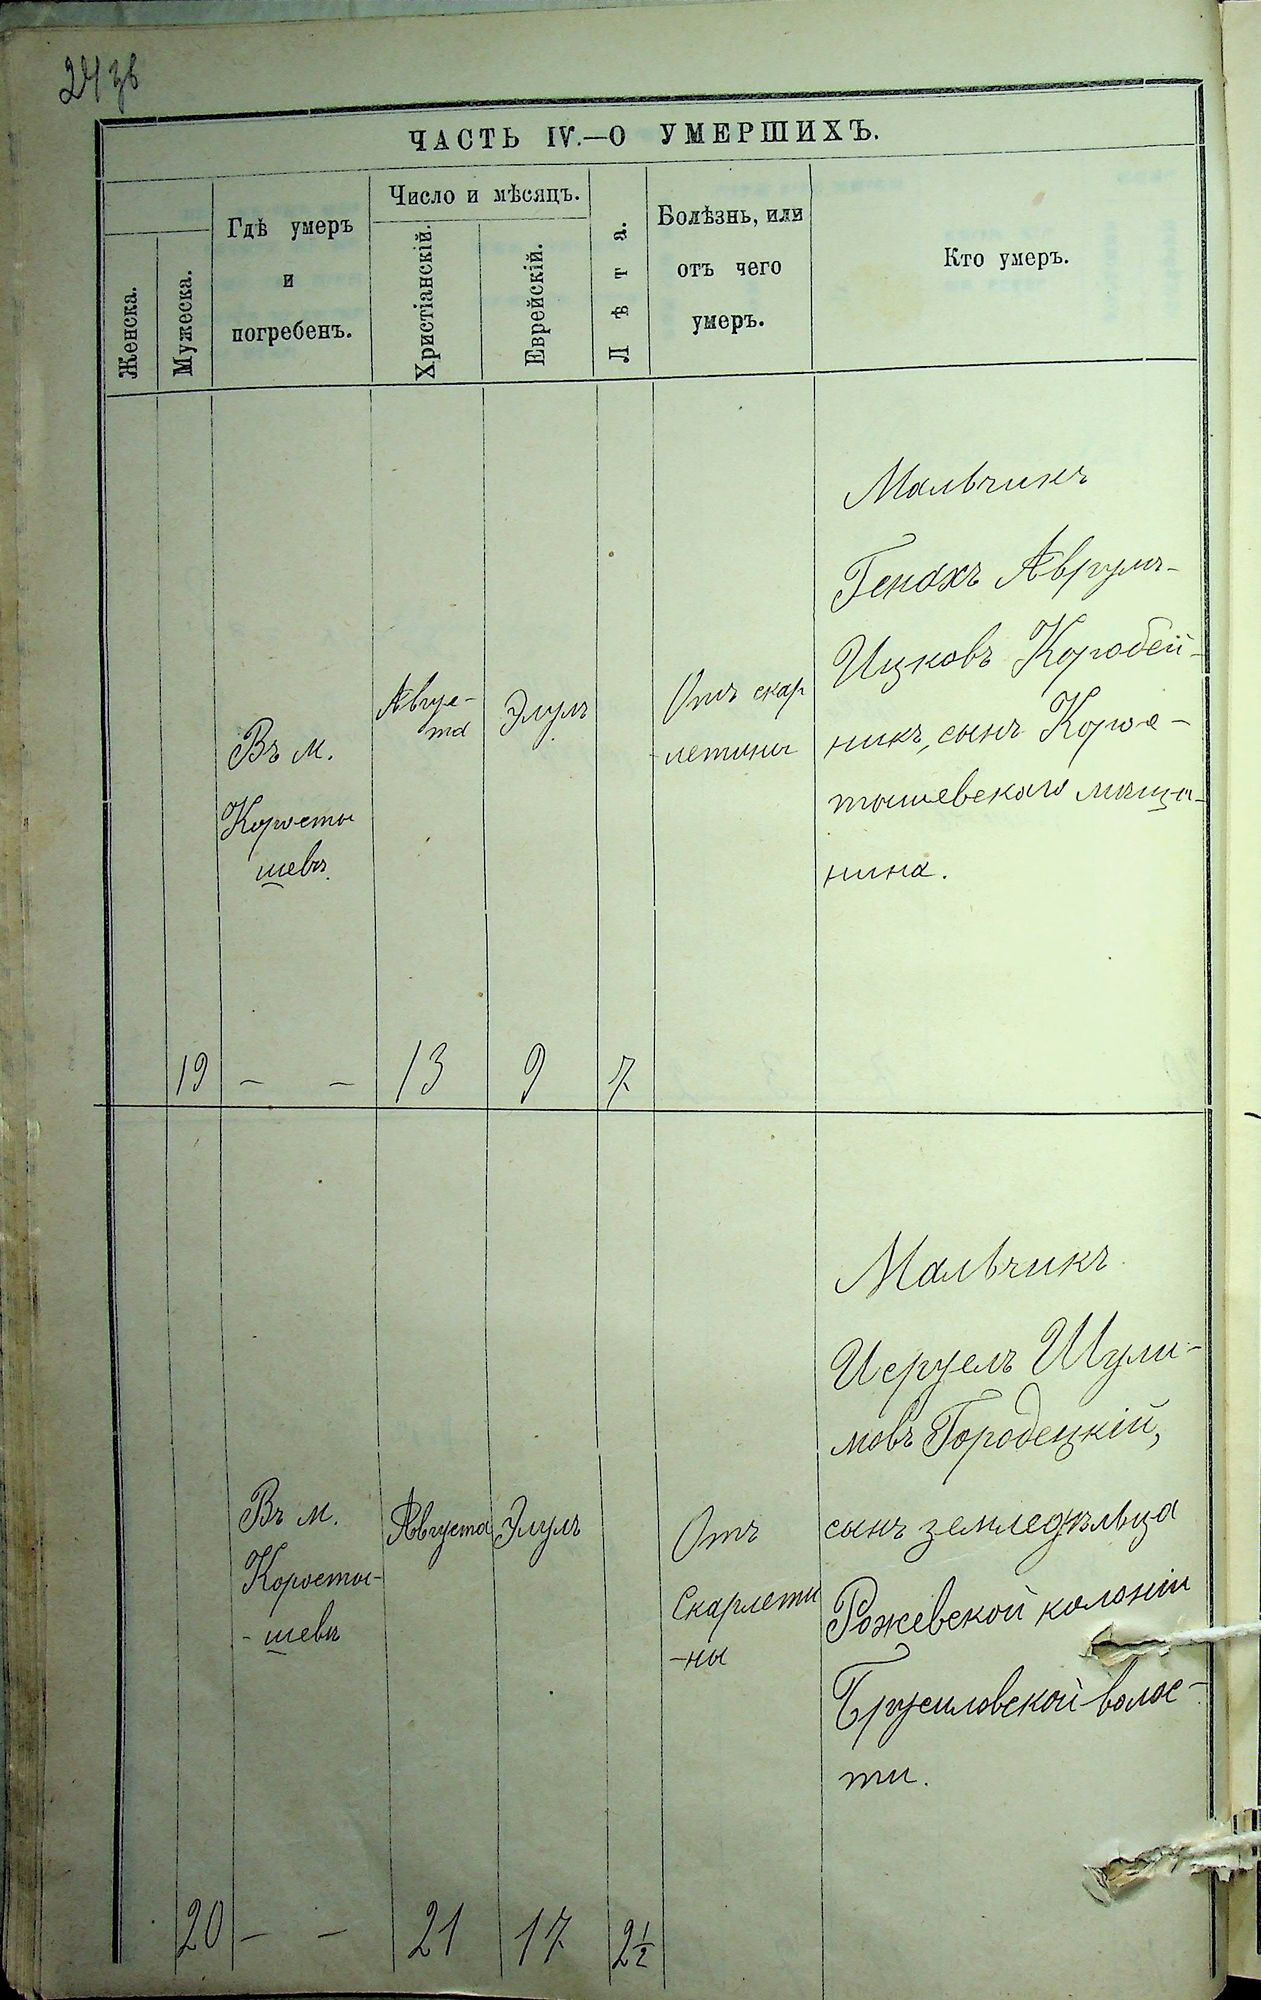 24 зв
ЧАСТЬ IV.—О УМЕРШИХЪ.
Женска.
Мужеска.
Гдѣ умеръ
и
погребенъ.
Число и мѣсяцъ.
Христіанскій.
Еврейскій.
Лѣта.
Болѣзнь, или
отъ чего
умеръ.
Кто умеръ.
Въ м.
Коросты
шевѣ.
Авгус-
та
Элулъ
Отъ скар
-летины
Мальчикъ
Генахъ Аврумъ-
Ицковъ Коробей-
никъ, сынъ Коро-
стышевскаго мѣща-
нина.
19 — — 13 9 7
Въ м.
Коросты-
- шевѣ
Августа
Элулъ
Отъ
Скарлети
-ны
Мальчикъ
Исруель Шули-
мовъ Городецкій,
сынъ земледѣльца
Рожевской колоніи
Брусиловской волос-
ти.
20 — — 21 17 2½